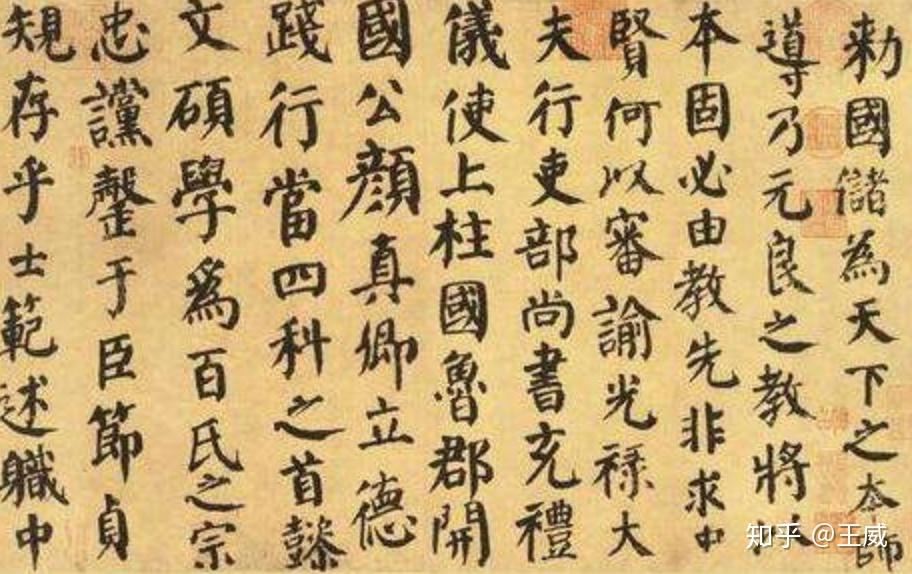 勑國儲為天下之本師
導乃元良之教將以
本固必由教先非求中
賢何以審諭光祿大
夫行吏部尚書充禮
儀使上柱國魯郡開
國公顏真卿立德
踐行當四科之首懿
文碩學爲百氏之宗
忠讜罄于臣節貞
規存乎士範述職中
知乎 @王威